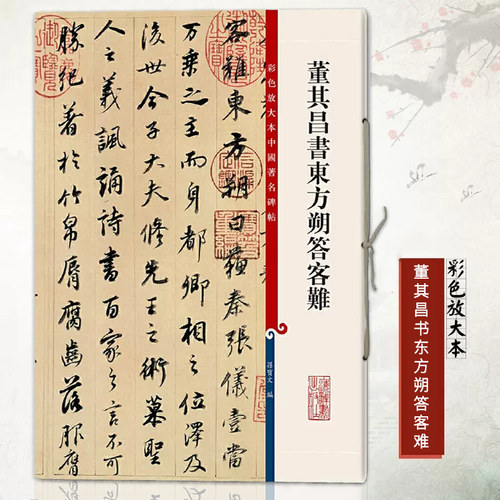 彩色放大本
董其昌书东方朔答客难
董其昌書東方朔答客難
彩色放大本中國著名碑帖
孫寶文 編
客難東方朔曰蘇秦張儀壹當
万乘之主而身都卿相之位澤及
後世今子大夫修先王之術慕聖
人之義諷誦詩書百家之言不可
勝紀著於竹帛脣腐齒落服膺